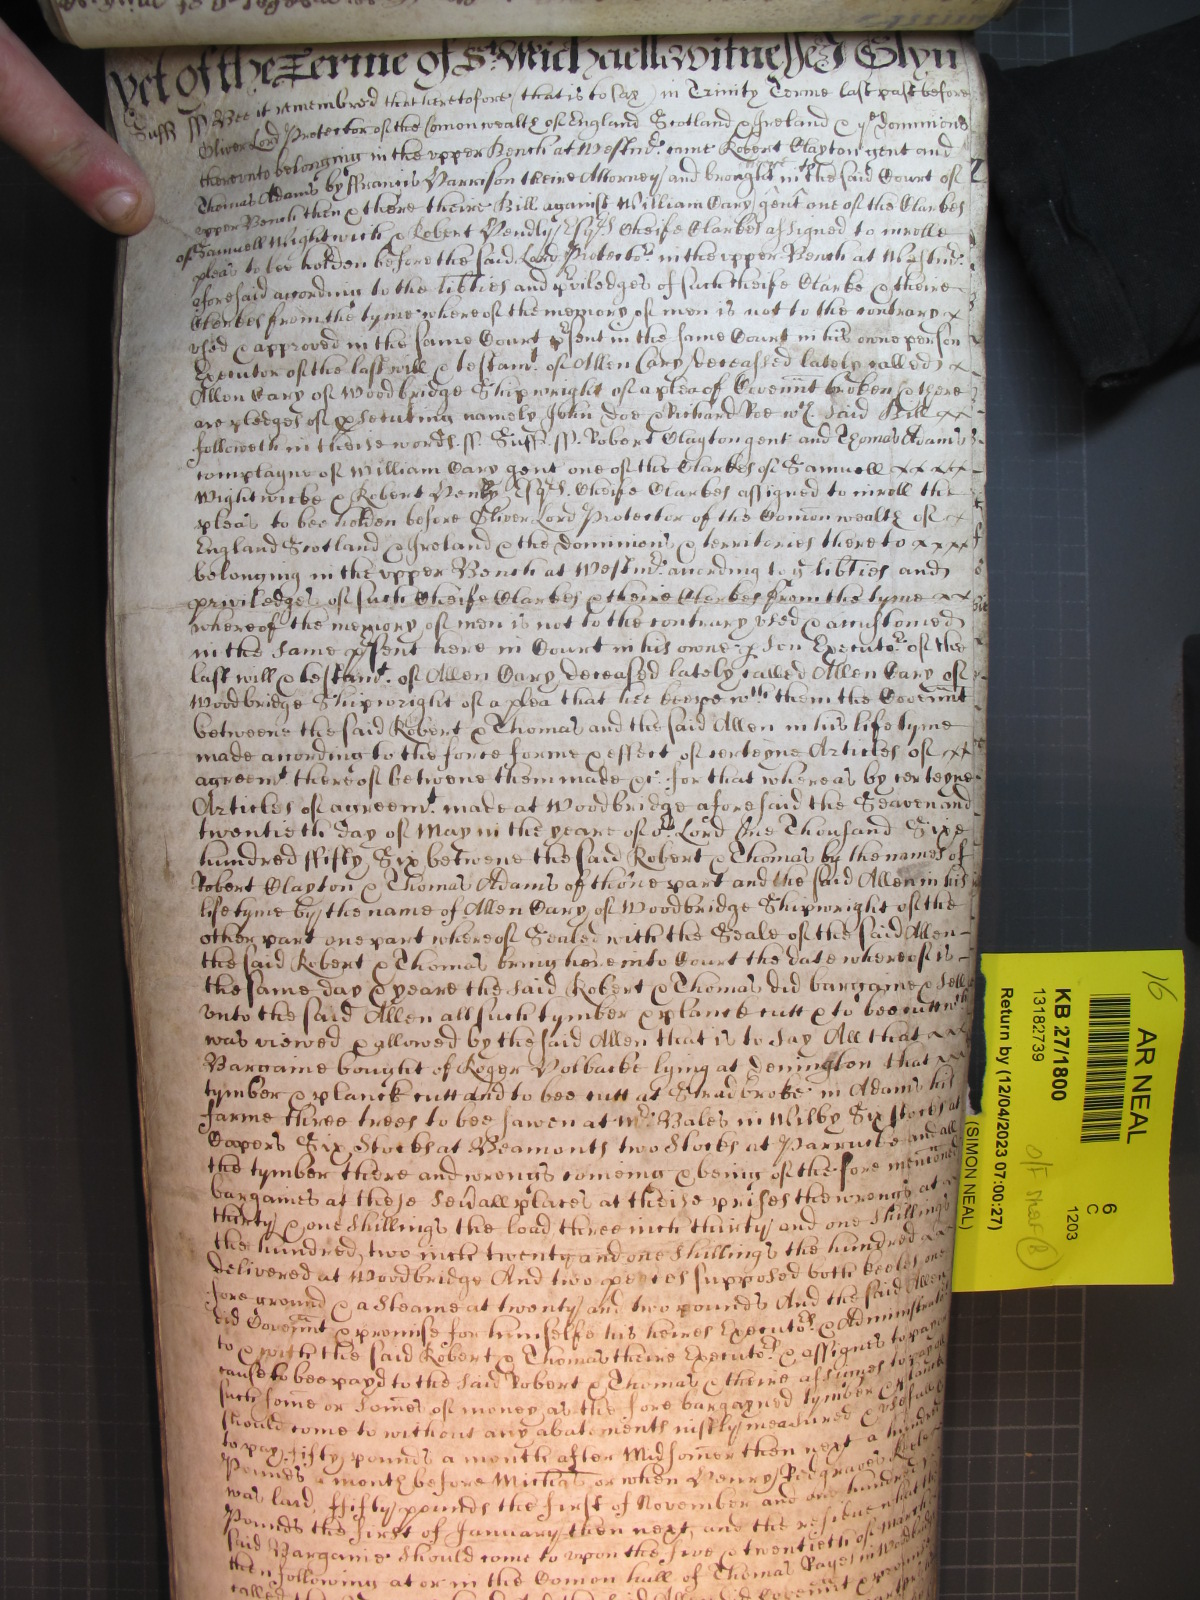 yet of the Terme of St. Michaell witnesse J Glyn
Suff ss Bee it remembred that heretofore (that is to say) in Trinity Terme last past before
Oliver Lord Protector of the Comonwealth of England Scotland & Ireland & ye Dominions
thereunto belonging in the upper Bench at Westmr. came Robert Clayton gent and
Thomas Adams by Francis Harrison theire Attorney and brought in the said Court of
upper Bench then & there theire Bill against William Cary gent one of the Clarkes
of Samuell Wightwick & Robert Hendly Esqrs. Cheife Clarkes assigned to inrolle
pleas to bee holden before the said Lord Protector in the upper Bench at Westmr.
aforesaid acording to the lib'ties and p'viledges of such Cheife Clarke & theire
Clerkes from the tyme whereof the memory of men is not to the contrary x
used & approved in the same Court p'sent in the same Court in his owne person
Executor of the last will & testamt. of Allen Cary deceased lately called x
Allen Cary of Woodbridge Shipwright of a plea of Covennt broken & there
are pledges of p'secuting namely John Doe & Richard Roe wch. said Bill xx
followeth in theise words ss. Suff. ss. Robert Clayton gent and Thomas Adams
complayne of William Cary gent one of the Clarkes of Samuell xxxxx
Wightwicke & Robert Henly Esqrs. Cheife Clarkes assigned to inroll the
pleas to bee holden before Oliver Lord Protector of the Comonwealth of x
England Scotland & Ireland & the dominions & territories thereto xxxx
belonging in the upper Bench at Westmr. acording to ye lib'ties and
priviledges of such Cheife Clarkes & theire Clerkes from the tyme xx
whereof the memory of men is not to the contrary used & accustomed
in the same p'sent here in Court in his owne p'son Executor. of the
last will & testamt. of Allen Cary deceased lately called Allen Cary of
Woodbridge Shipwright of a plea that hee keepe wth them the Covennt
betweene the said Robert & Thomas and the said Allen in his life tyme
made acording to the force forme & effect of certeyne Articles of xx
agreemt. thereof betwene them made &c. for that whereas by certeyne
Articles of agreemt. made at Woodbridge aforesaid the Seaven and
twentieth day of May in the yeare of or. Lord One Thousand Sixe
hundred ffifty Six betweene the said Robert & Thomas by the names of
Robert Clayton & Thomas Adams of thone part and the said Allen in his
life tyme by the name of Allen Cary of Woodbridge Shipwright of the
other part one part whereof Sealed with the Seale of the said Allen
the said Robert & Thomas bring here into Court the date whereof is
the same day & yeare the said Robert & Thomas did bargaine & sell
unto the said Allen all such tymber & plancke cutt & to bee cutt wch
was viewed & allowed by the said Allen that is to say All that xxx
Bargaine bought of Roger lying at Denington that xxx
tymber & planck cutt and to bee cutt at Stradbroke in Adams his
farme three trees to bee sawen at Mr. Bales in Wilby Six stocks at
Coopers Six Stocks at Beamonts two Stocks at and all
the tymber there and wrongs comeing & being of the fore mentioned
bargaines at these sev'all places at theise prises the wrongs at x
thirty & one shillings the load three inch thirty and one shillings
the hundred two inch twenty and one shillings the hundred xx
delivered at Woodbridge And two supposed both one
fore ground & a Steame at twenty and two pounds And the said Allen
did Covennt & promise for himselfe his heires Executors. & Administrators
to & with the said Robert & Thomas theire Executors. & assignes to pay or
cause to bee payd to the said Robert & Thomas & theire assignes
such some or somes of money as the fore bargayned tymber & planck
should come to without any abatements measured & usefull
to pay fifty pounds a month after Midsomer then next a hundred
Pounds a month before Micha's or when Henry Redgraves
was laid ffifty pounds the first of November and one hundred
Pounds the first of January then next and the residue what the
said Bargaine should come to upon the five & twentieth of March
then following at or in the Comon hall of Thomas Pages in Woodbridge
AR NEAL
16
KB 27/1800
13182739
Return by (12/04/2023 07:00:27)
(SIMON NEAL)
6
C
1203